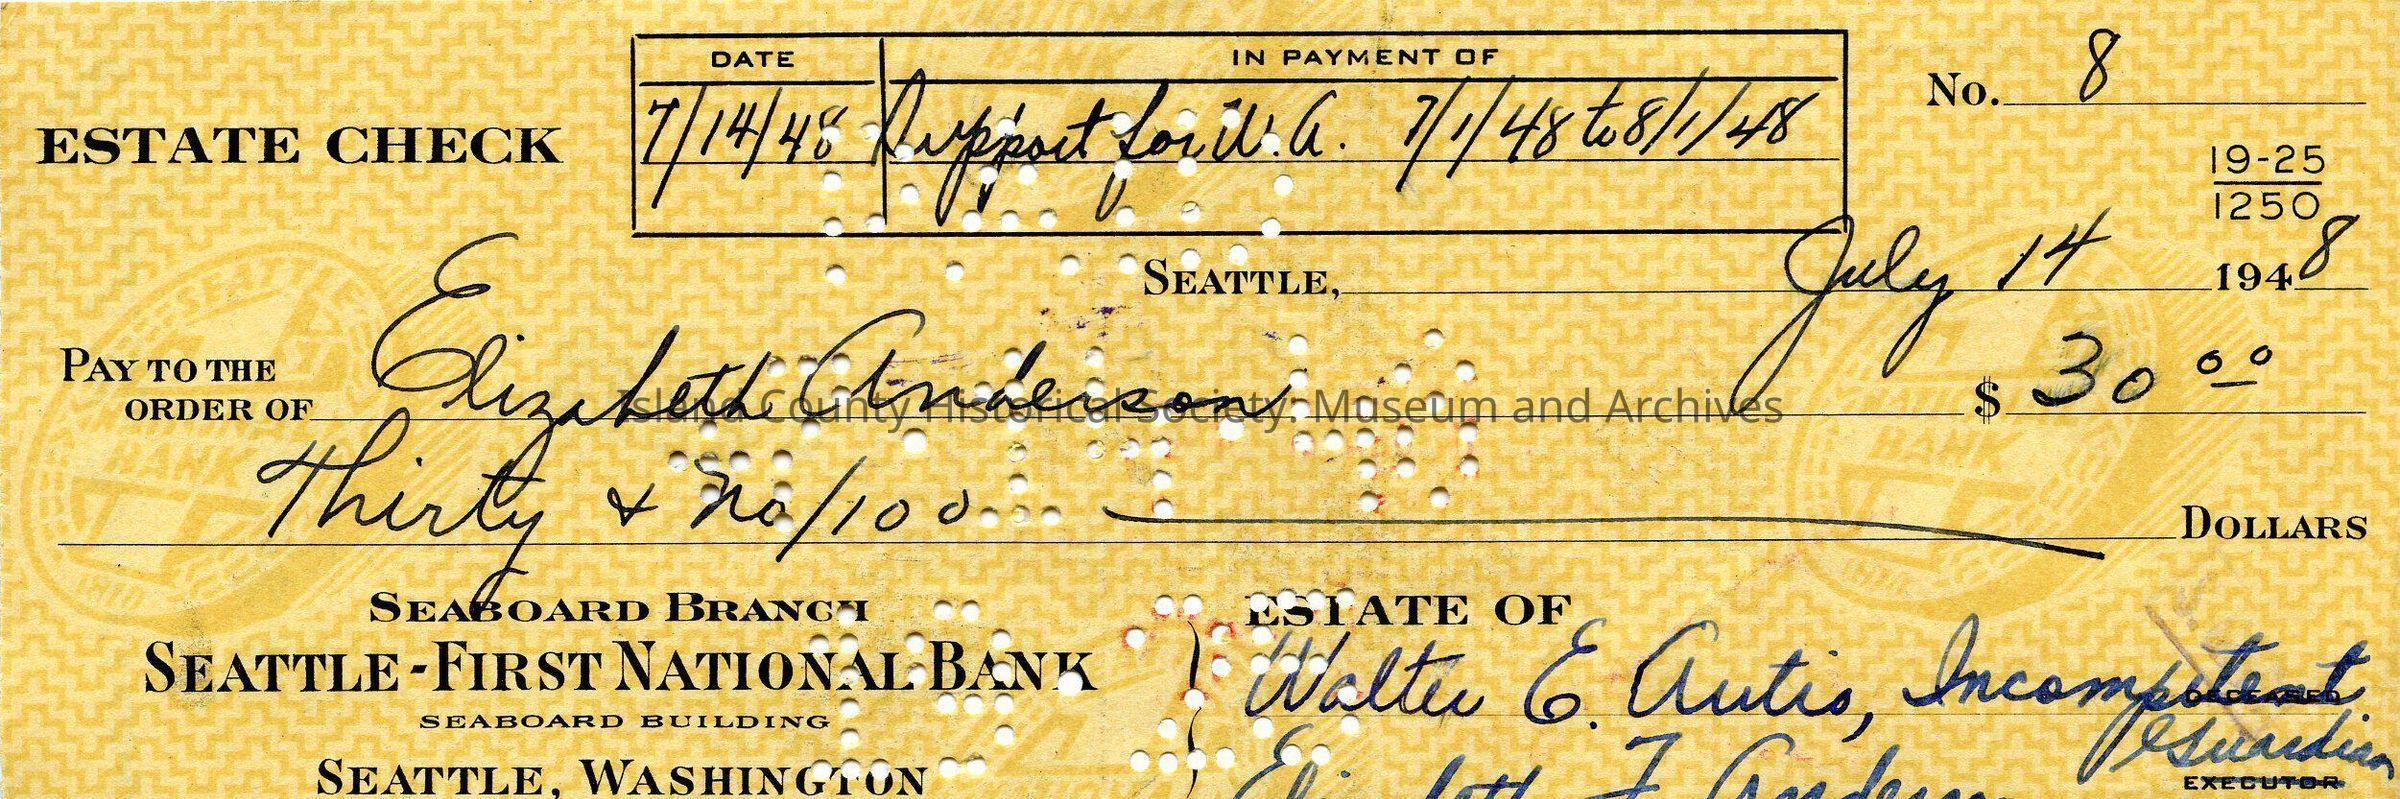 DATE IN PAYMENT OF
No. 8
ESTATE CHECK
7/14/48 Support for W.A. 7/1/48 to 8/1/48
19-25
1250
SEATTLE, July 14 1948
PAY TO THE
ORDER OF Elizabeth Anderson $ 30 00
Island County Historical Society: Museum and Archives
Thirty & no/100 DOLLARS
SEABOARD BRANCH
SEATTLE-FIRST NATIONAL BANK
SEABOARD BUILDING
SEATTLE, WASHINGTON
ESTATE OF
Walter E. Autio, Incompetent
DECEASED
Guardian
Elizabeth F. Anderson
EXECUTOR